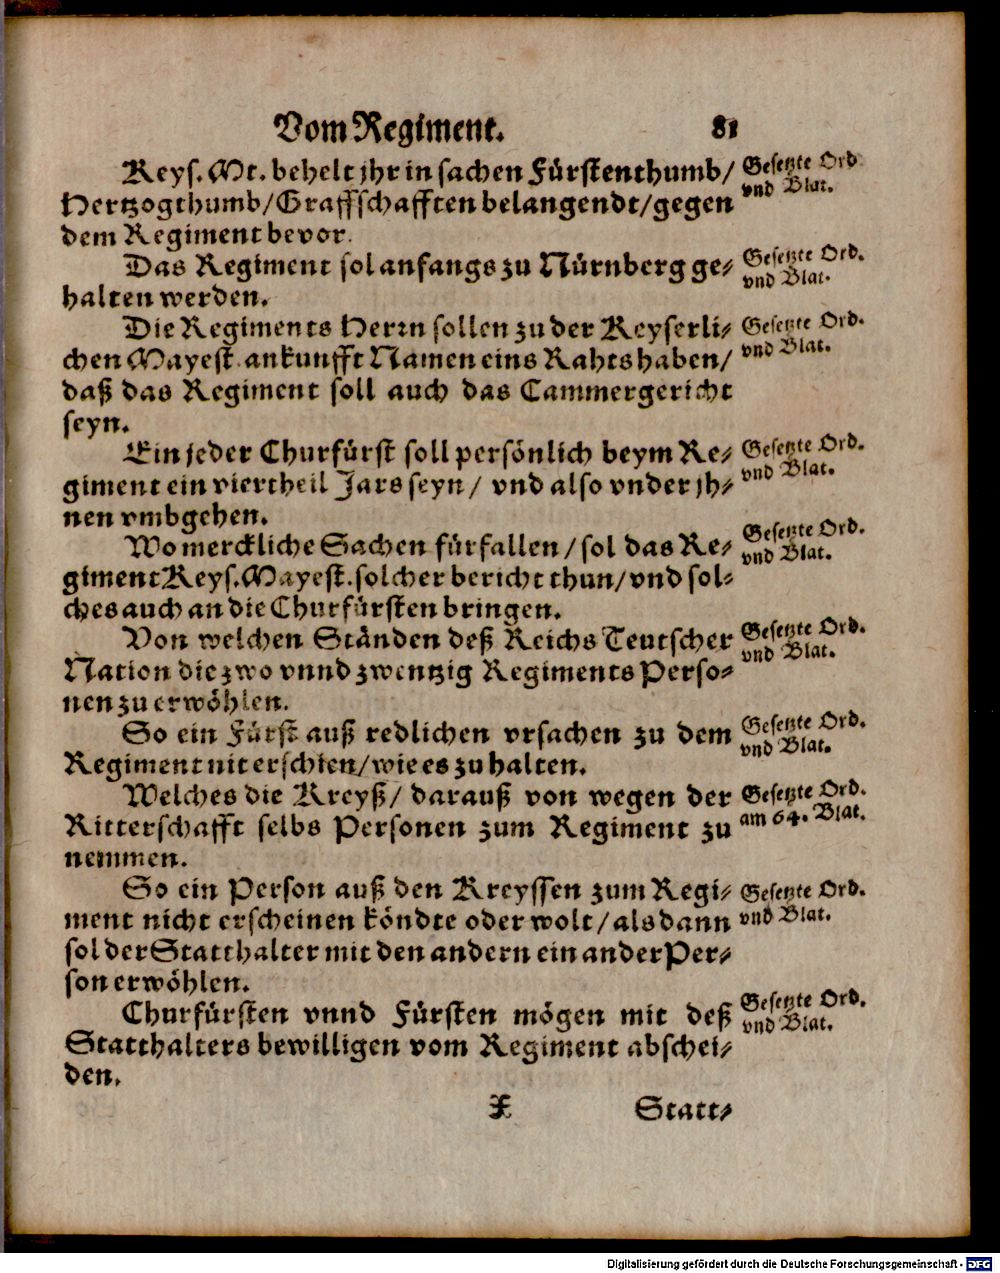 Vom Regiment. 81
Keys. Mt. behelt jhr in sachen Fürstenthumb/ Gesetzte Ord.
Hertzogthumb/Graffschafften belangendt/gegen vnd Blat.
dem Regiment bevor.
Das Regiment sol anfangs zu Nürnberg ge⸗ Gesetzte Ord.
halten werden. vnd Blat.
Die Regiments Herrn sollen zu der Keyserli⸗ Gesetzte Ord.
chen Mayest. ankunfft Namen eins Rahts haben/ vnd Blat.
daß das Regiment soll auch das Cammergericht
seyn.
Ein jeder Churfürst soll persönlich beym Re⸗ Gesetzte Ord.
giment ein viertheil Jars seyn/ vnd also vnder jh⸗ vnd Blat.
nen vmbgehen.
Wo merckliche Sachen fürfallen/sol das Re⸗ Gesetzte Ord.
giment Keys. Mayest. solcher bericht thun/vnd sol⸗ vnd Blat.
ches auch an die Churfürsten bringen.
Von welchen Ständen deß Reichs Teutscher Gesetzte Ord.
Nation die zwo vnnd zwentzig Regiments Perso⸗ vnd Blat.
nen zu erwöhlen.
So ein Fürst auß redlichen vrsachen zu dem Gesetzte Ord.
Regiment nit erschien/wie es zu halten. vnd Blat.
Welches die Kreyß/ darauß von wegen der Gesetzte Ord.
Ritterschafft selbs Personen zum Regiment zu am 64. Blat.
nemmen.
So ein Person auß den Kreyssen zum Regi⸗ Gesetzte Ord.
ment nicht erscheinen köndte oder wolt/als dann vnd Blat.
sol der Statthalter mit den andern ein ander Per⸗
son erwöhlen.
Churfürsten vnnd Fürsten mögen mit deß Gesetzte Ord.
Statthalters bewilligen vom Regiment abschei⸗ vnd Blat.
den.
X Statt⸗
Digitalisierung gefördert durch die Deutsche Forschungsgemeinschaft - DFG